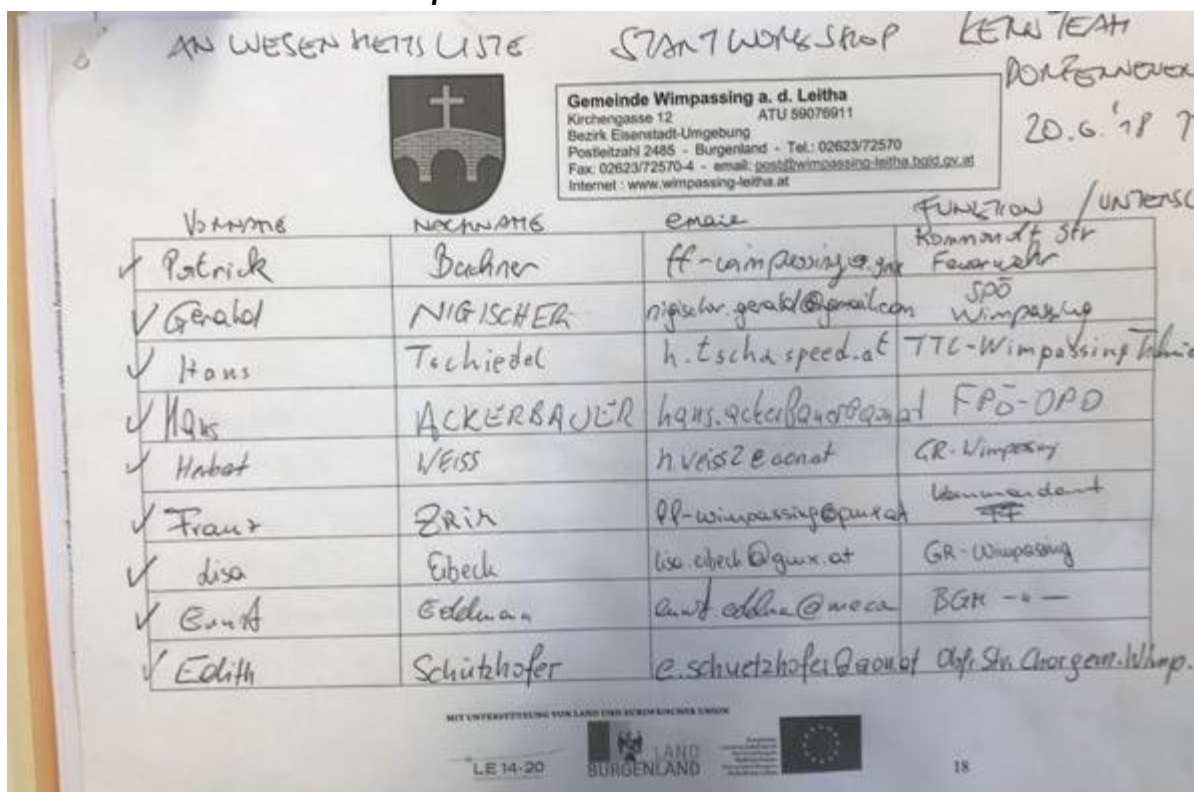 ANWESENHEITSLISTE STARTWORKSHOP KERNTEAM
DORFERNEUER
20.6.'18
Gemeinde Wimpassing a. d. Leitha
Kirchengasse 12 ATU 59076911
Bezirk Eisenstadt-Umgebung
Postleitzahl 2485 - Burgenland - Tel.: 02623/72570
Fax: 02623/72570-4 - email: post@wimpassing-leitha.bgld.gv.at
Internet : www.wimpassing-leitha.at
VORNAME NACHNAME email FUNKTION /UNTERSC
Patrick Bachner ff-wimpassing@gmx Kommandt Stv Feuerwehr
Gerald NIGISCHER nigischer.gerald@gmail.com SPÖ Wimpassing
Hans Tschiedel h.tscha speed.at TTC-Wimpassing
Hans ACKERBAUER hans.ackerbauer@aon.at FPÖ-OPO
Herbert WEISS h.veiss2@aon.at GR-Wimpassing
Franz Kommandant FF
Lisa Eibeck lisa.eibeck@gmx.at GR-Wimpassing
Ernst BGM -"-
Edith Schützhofer e.schuetzhofer@aon.at Obfr. Stv. Chorgem. Wimp.
MIT UNTERSTÜTZUNG VON LAND UND EUROPÄISCHER UNION
LE 14-20 LAND BURGENLAND
18